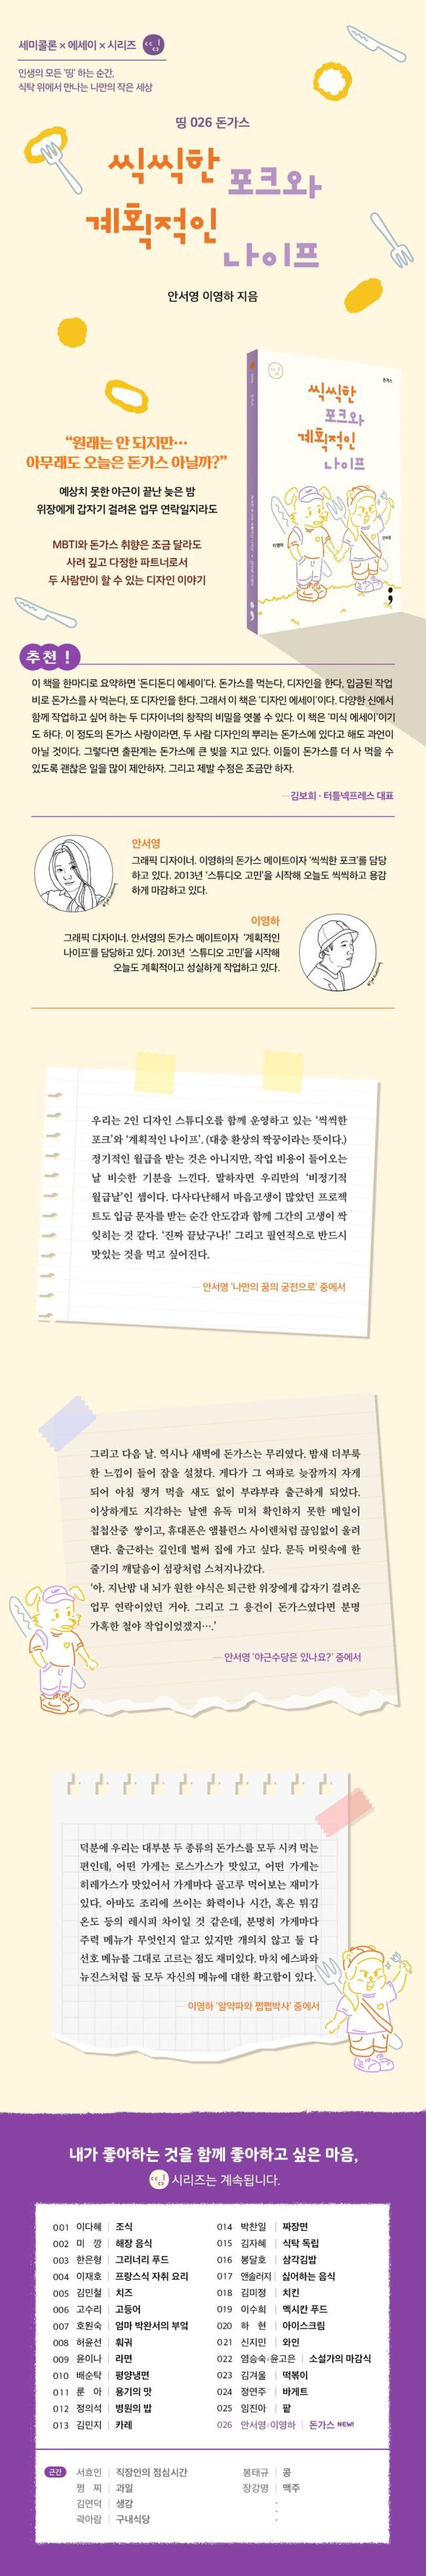 세미콜론 × 에세이 × 시리즈
인생의 모든 '띵' 하는 순간,
식탁 위에서 만나는 나만의 작은 세상
띵 026 돈가스
씩씩한 포크와
계획적인
나이프
안서영 이영하 지음
돈가스
씩씩한
포크와
계획적인
나이프
이영하
안서영
“원래는 안 되지만…
아무래도 오늘은 돈가스 아닐까?”
예상치 못한 야근이 끝난 늦은 밤
위장에게 갑자기 걸려온 업무 연락일지라도
MBTI와 돈가스 취향은 조금 달라도
사려 깊고 다정한 파트너로서
두 사람만이 할 수 있는 디자인 이야기
추천!
이 책을 한마디로 요약하면 '돈디돈디 에세이'다. 돈가스를 먹는다, 디자인을 한다, 입금된 작업
비로 돈가스를 사 먹는다, 또 디자인을 한다. 그래서 이 책은 '디자인 에세이'이다. 다양한 신에서
함께 작업하고 싶어 하는 두 디자이너의 창작의 비밀을 엿볼 수 있다. 이 책은 '미식 에세이'이기
도 하다. 이 정도의 돈가스 사랑이라면, 두 사람 디자인의 뿌리는 돈가스에 있다고 해도 과언이
아닐 것이다. 그렇다면 출판계는 돈가스에 큰 빚을 지고 있다. 이들이 돈가스를 더 사 먹을 수
있도록 괜찮은 일을 많이 제안하자. 그리고 제발 수정은 조금만 하자.
—김보희 · 터틀넥프레스 대표
안서영
그래픽 디자이너. 이영하의 돈가스 메이트이자 '씩씩한 포크'를 담당
하고 있다. 2013년 '스튜디오 고민'을 시작해 오늘도 씩씩하고 용감
하게 마감하고 있다.
이영하
그래픽 디자이너. 안서영의 돈가스 메이트이자 '계획적인
나이프'를 담당하고 있다. 2013년 '스튜디오 고민'을 시작해
오늘도 계획적이고 성실하게 작업하고 있다.
우리는 2인 디자인 스튜디오를 함께 운영하고 있는 '씩씩한
포크'와 '계획적인 나이프'. (대충 환상의 짝꿍이라는 뜻이다.)
정기적인 월급을 받는 것은 아니지만, 작업 비용이 들어오는
날 비슷한 기분을 느낀다. 말하자면 우리만의 '비정기적
월급날'인 셈이다. 다사다난해서 마음고생이 많았던 프로젝
트도 입금 문자를 받는 순간 안도감과 함께 그간의 고생이 싹
잊히는 것 같다. '진짜 끝났구나!' 그리고 필연적으로 반드시
맛있는 것을 먹고 싶어진다.
— 안서영 '나만의 꿈의 궁전으로' 중에서
그리고 다음 날. 역시나 새벽에 돈가스는 무리였다. 밤새 더부룩
한 느낌이 들어 잠을 설쳤다. 게다가 그 여파로 늦잠까지 자게
되어 아침 챙겨 먹을 새도 없이 부랴부랴 출근하게 되었다.
이상하게도 지각하는 날엔 유독 미처 확인하지 못한 메일이
첩첩산중 쌓이고, 휴대폰은 앰뷸런스 사이렌처럼 끊임없이 울려
댄다. 출근하는 길인데 벌써 집에 가고 싶다. 문득 머릿속에 한
줄기의 깨달음이 섬광처럼 스쳐지나갔다.
'아. 지난밤 내 뇌가 원한 야식은 퇴근한 위장에게 갑자기 걸려온
업무 연락이었던 거야. 그리고 그 용건이 돈가스였다면 분명
가혹한 철야 작업이었겠지….'
— 안서영 '야근수당은 있나요?' 중에서
덕분에 우리는 대부분 두 종류의 돈가스를 모두 시켜 먹는
편인데, 어떤 가게는 로스가스가 맛있고, 어떤 가게는
히레가스가 맛있어서 가게마다 골고루 먹어보는 재미가
있다. 아마도 조리에 쓰이는 화력이나 시간, 혹은 튀김
온도 등의 레시피 차이일 것 같은데, 분명히 가게마다
주력 메뉴가 무엇인지 알고 있지만 개의치 않고 둘 다
선호 메뉴를 그대로 고르는 점도 재미있다. 마치 에스파와
뉴진스처럼 둘 모두 자신의 메뉴에 대한 확고함이 있다.
— 이영하 '알약파와 쩝쩝박사' 중에서
내가 좋아하는 것을 함께 좋아하고 싶은 마음,
시리즈는 계속됩니다.
001 이다혜 | 조식
002 미 깡 | 해장 음식
003 한은형 | 그리너리 푸드
004 이재호 | 프랑스식 자취 요리
005 김민철 | 치즈
006 고수리 | 고등어
007 호원숙 | 엄마 박완서의 부엌
008 허윤선 | 훠궈
009 윤이나 | 라면
010 배순탁 | 평양냉면
011 룬 아 | 용기의 맛
012 정의석 | 병원의 밥
013 김민지 | 카레
014 박찬일 | 짜장면
015 김자혜 | 식탁 독립
016 봉달호 | 삼각김밥
017 앤솔러지 | 싫어하는 음식
018 김미정 | 치킨
019 이수희 | 멕시칸 푸드
020 하 현 | 아이스크림
021 신지민 | 와인
022 염승숙·윤고은 | 소설가의 마감식
023 김겨울 | 떡볶이
024 정연주 | 바게트
025 임진아 | 팥
026 안서영·이영하 | 돈가스 NEW!
근간
서효인 | 직장인의 점심시간
쩡 찌 | 과일
김연덕 | 생강
곽아람 | 구내식당
봉태규 | 콩
장강명 | 맥주